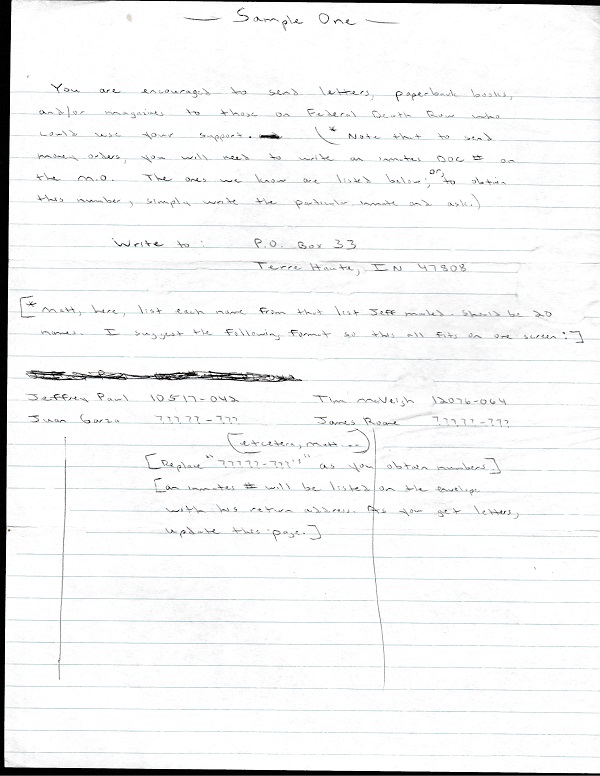 — Sample One —
You are encouraged to send letters, paperback books,
and/or magazines to those on Federal Death Row who
could use your support. (* Note that to send
money orders, you will need to write an inmates DOC # on
the M.O. The ones we know are listed below; or, to obtain
this number, simply write the particular inmate and ask.)
Write to: P.O. Box 33
Terre Haute, IN 47808
[* Matt, here, list each name from that list Jeff mailed. Should be 20
names. I suggest the following format so this all fits on one screen:]
Jeffrey Paul 10517-042 Tim McVeigh 12076-064
Juan Garza ?????-??? James Roane ?????-???
(etcetera, Matt...)
[Replace "?????-???'s" as you obtain numbers]
[an inmates # will be listed on the envelope
with his return address. As you get letters,
update this page.]